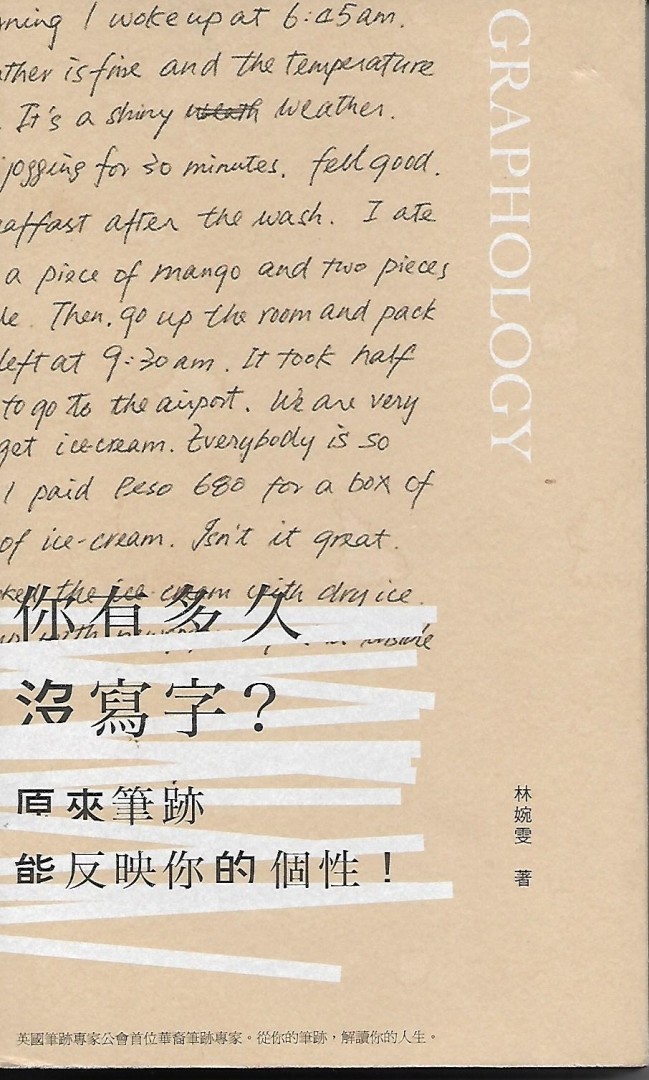 rning I woke up at 6:45am.
ather is fine and the temperature
. It's a shiny weath weather.
jogging for 30 minutes. fell good.
eaffast after the wash. I ate
a piece of mango and two pieces
le. Then, go up the room and pack
left at 9:30am. It took half
to go to the airport. We are very
get ice-cream. Everybody is so
I paid Peso 680 for a box of
of ice-cream. Isn't it great.
ked the ice-cream with dry ice.
with inside
GRAPHOLOGY
你有多久
沒寫字?
原來筆跡
能反映你的個性!
林婉雯 著
英國筆跡專家公會首位華裔筆跡專家。從你的筆跡,解讀你的人生。